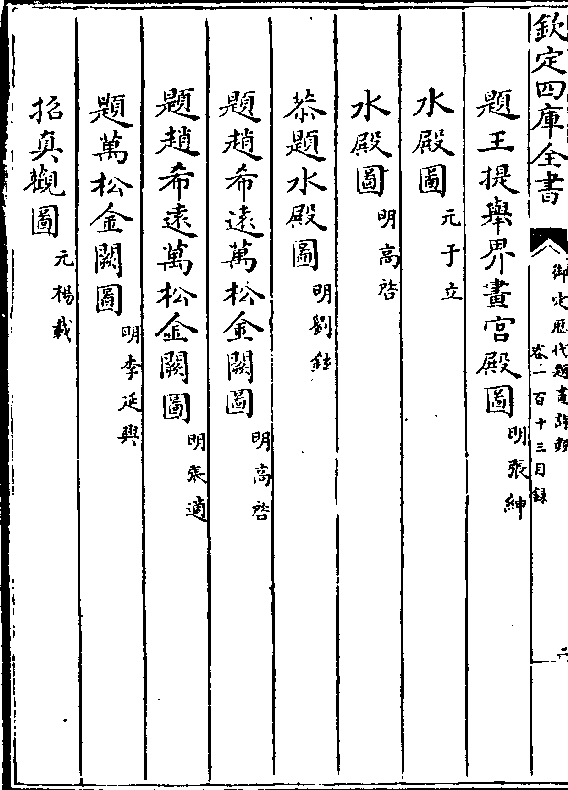 欽定四庫全書
御定歷代題畫詩類
卷一百十三目錄
題王提舉界畫宮殿圖 明張紳
水殿圖 元于立
水殿圖 明高啓
恭題水殿圖 明劉鉉
題趙希遠萬松金闕圖 明高啓
題趙希遠萬松金闕圖 明張適
題萬松金闕圖 明李延興
招真觀圖 元楊載